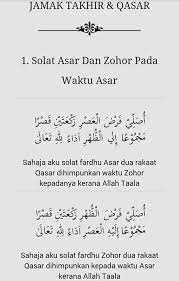 JAMAK TAKHIR & QASAR
1. Solat Asar Dan Zohor Pada
Waktu Asar
أُصَلِّيْ فَرْضَ الْعَصْرِ رَكْعَتَيْنِ قَصْرًا
مَجْمُوْعًا إِلَى الظُّهْرِ أَدَاءً لِلّٰهِ تَعَالَى
Sahaja aku solat fardhu Asar dua rakaat
Qasar dihimpunkan waktu Zohor
kepadanya kerana Allah Taala
أُصَلِّيْ فَرْضَ الظُّهْرِ رَكْعَتَيْنِ قَصْرًا
مَجْمُوْعًا إِلَيْهِ الْعَصْرُ أَدَاءً لِلّٰهِ تَعَالَى
Sahaja aku solat fardhu Zohor dua rakaat
Qasar dihimpunkan kepada waktu Asar
kerana Allah Taala